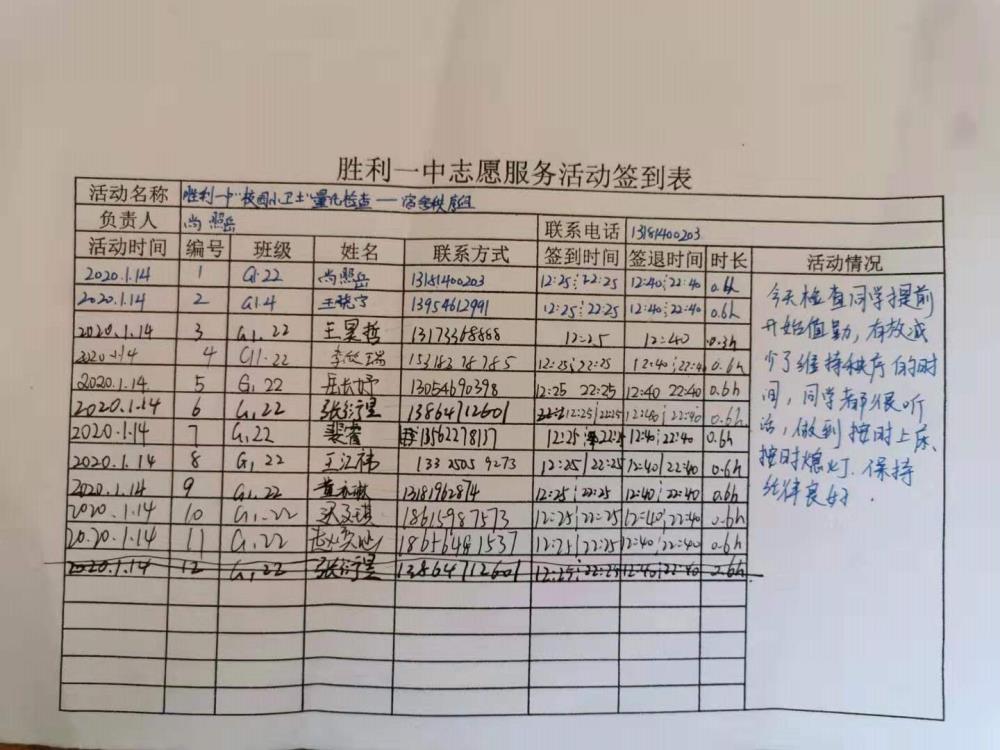 胜利一中志愿服务活动签到表
活动名称 胜利一中"校园小卫士"量化检查——宿舍秩序组
负责人 尚照岳 联系电话 13181400203
活动时间 编号 班级 姓名 联系方式 签到时间 签退时间 时长 活动情况
2020.1.14 1 G1.22 尚照岳 13181400203 12:25;22:25 12:40;22:40 0.6h
2020.1.14 2 G1.4 13954612991 12:25;22:25 12:40;22:40 0.6h
2020.1.14 3 G1.22 王昊哲 13173368888 12:25 12:40 0.3h
2020.1.14 4 G11.22 12:25;22:25 12:40;22:40 0.6h
2020.1.14. 5 G1.22 13054690398 12:25 22:25 12:40 22:40 0.6h
2020.1.14 6 G1.22 张衍星 13864712601 12:25/22:25 12:40/22:40 0.6h
2020.1.14 7 G1.22 裴睿 13562278137 12:25 22:25 12:40;22:40 0.6h
2020.1.14 8 G1.22 王江祎 133 2505 9273 12:25/22:25 12:40/22:40 0.6h
2020.1.14 9 G1.22 黄永琳 13181962874 12:25;22:25 12:40;22:40 0.6h
2020.1.14 10 G1.22 18615987573 12:25;22:25 12:40;22:40 0.6h
2020.1.14 11 G1.22 12:25/22:25 12:40;22:40 0.6h
2020.1.14 12 G1.22 张衍星 13864712601 12:25;22:25 12:40;22:40 0.6h
今天检查同学提前
开始值勤,有效减
少了维持秩序的时
间,同学都很听
话,做到按时上床
按时熄灯.保持
纪律良好.